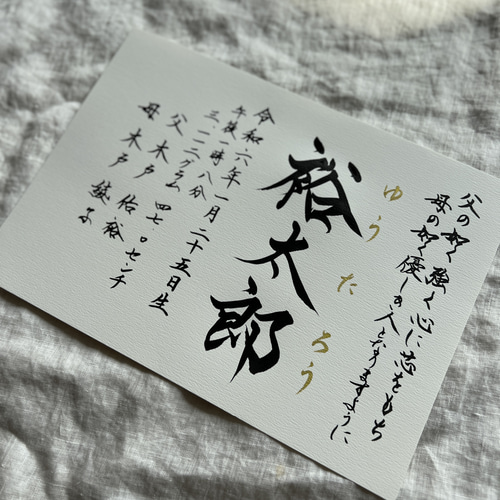 父の如く強く心に芯をもち
母の如く優しき人となりますように
ゆうたろう
裕太郎
令和六年一月二十五日生
午後一時八分
三一二二グラム 四七・〇センチ
父 木戸 佑裕
母 木戸